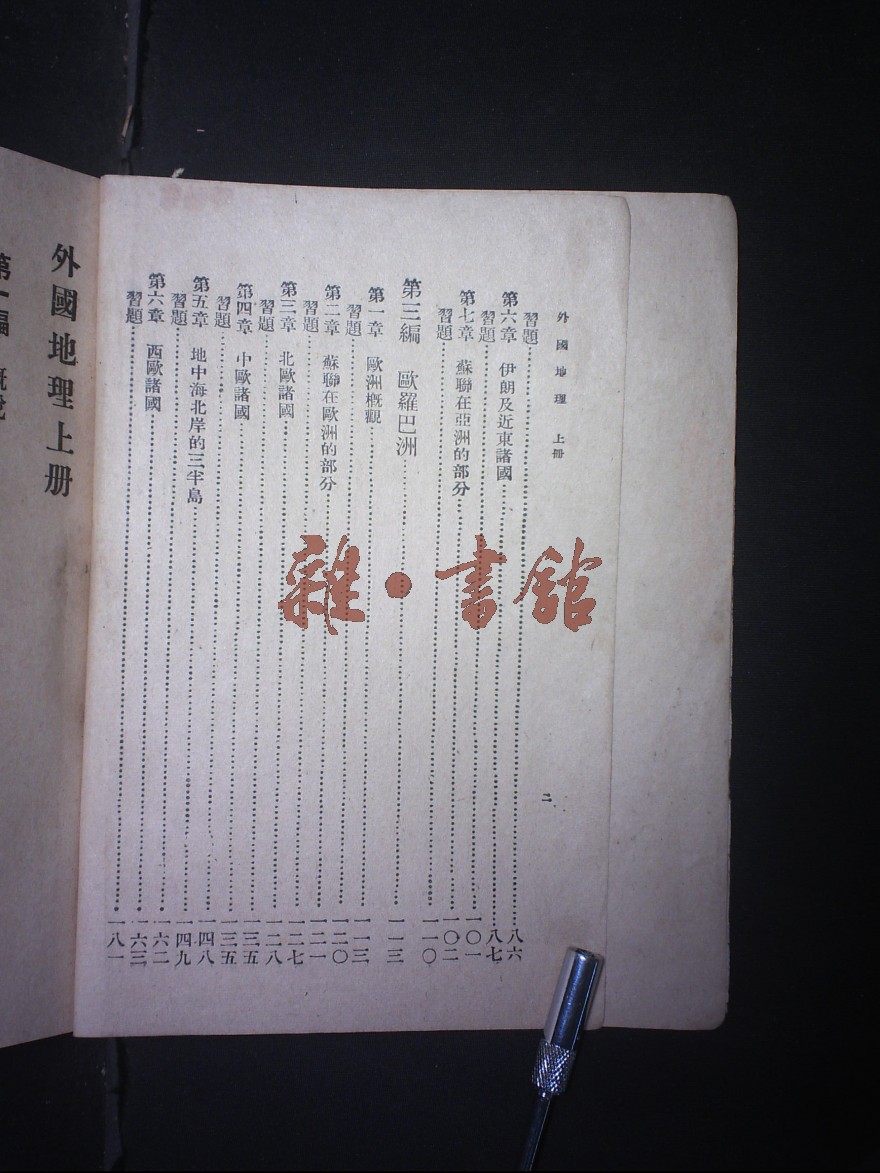 外國地理 上冊
二
習題……八六
第六章 伊朗及近東諸國……八七
習題……一〇一
第七章 蘇聯在亞洲的部分……一〇二
習題……一一〇
第三編 歐羅巴洲……一一三
第一章 歐洲概觀……一一三
習題……一二〇
第二章 蘇聯在歐洲的部分……一二一
習題……一二七
第三章 北歐諸國……一二八
習題……一三五
第四章 中歐諸國……一三五
習題……一四八
第五章 地中海北岸的三半島……一四九
習題……一六二
第六章 西歐諸國……一六三
習題……一八一
外國地理上册
第一編 概說
雜·書館